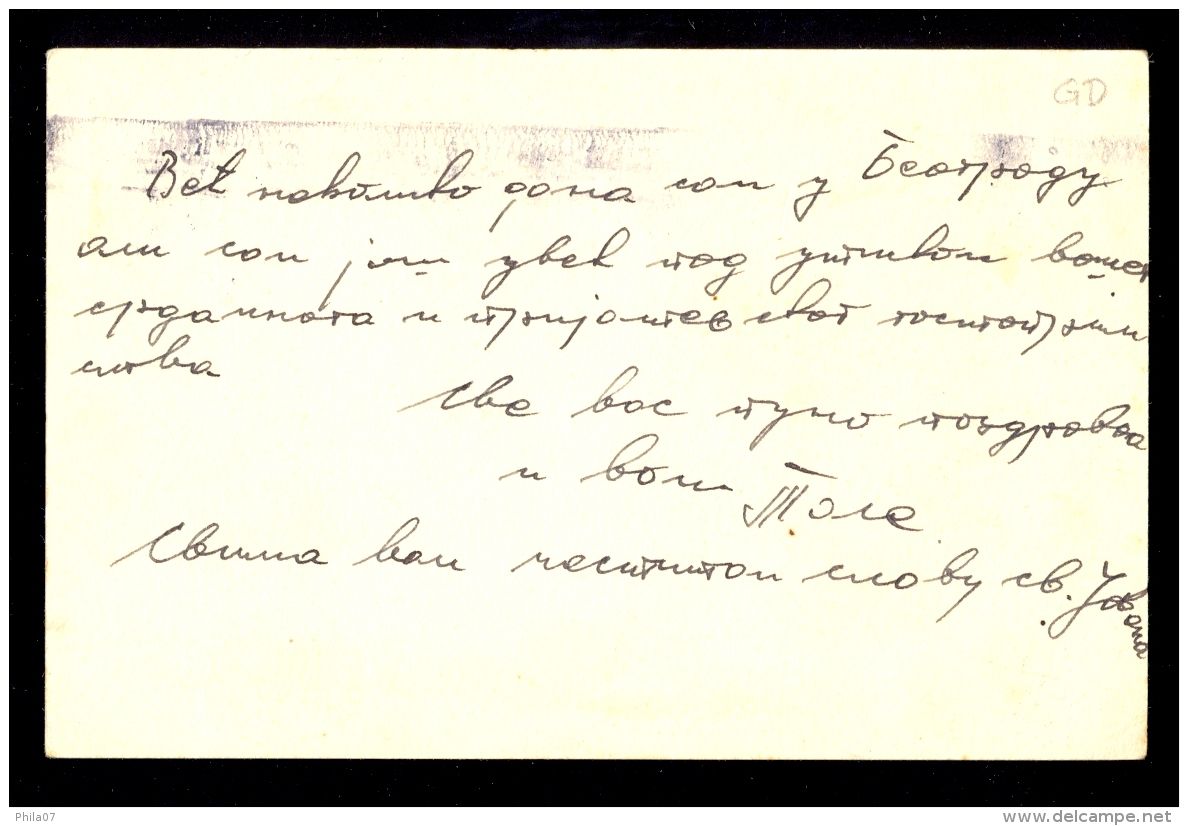 GD
Већ неколико дана сам у Београду
али сам још увек под утиском вашег
срдачног и пријатељског гостоприм
ства
Све вас пуно поздравља
и ваш Толе
Свима вам честитам славу св. Јована
Phila07
delcampe.net